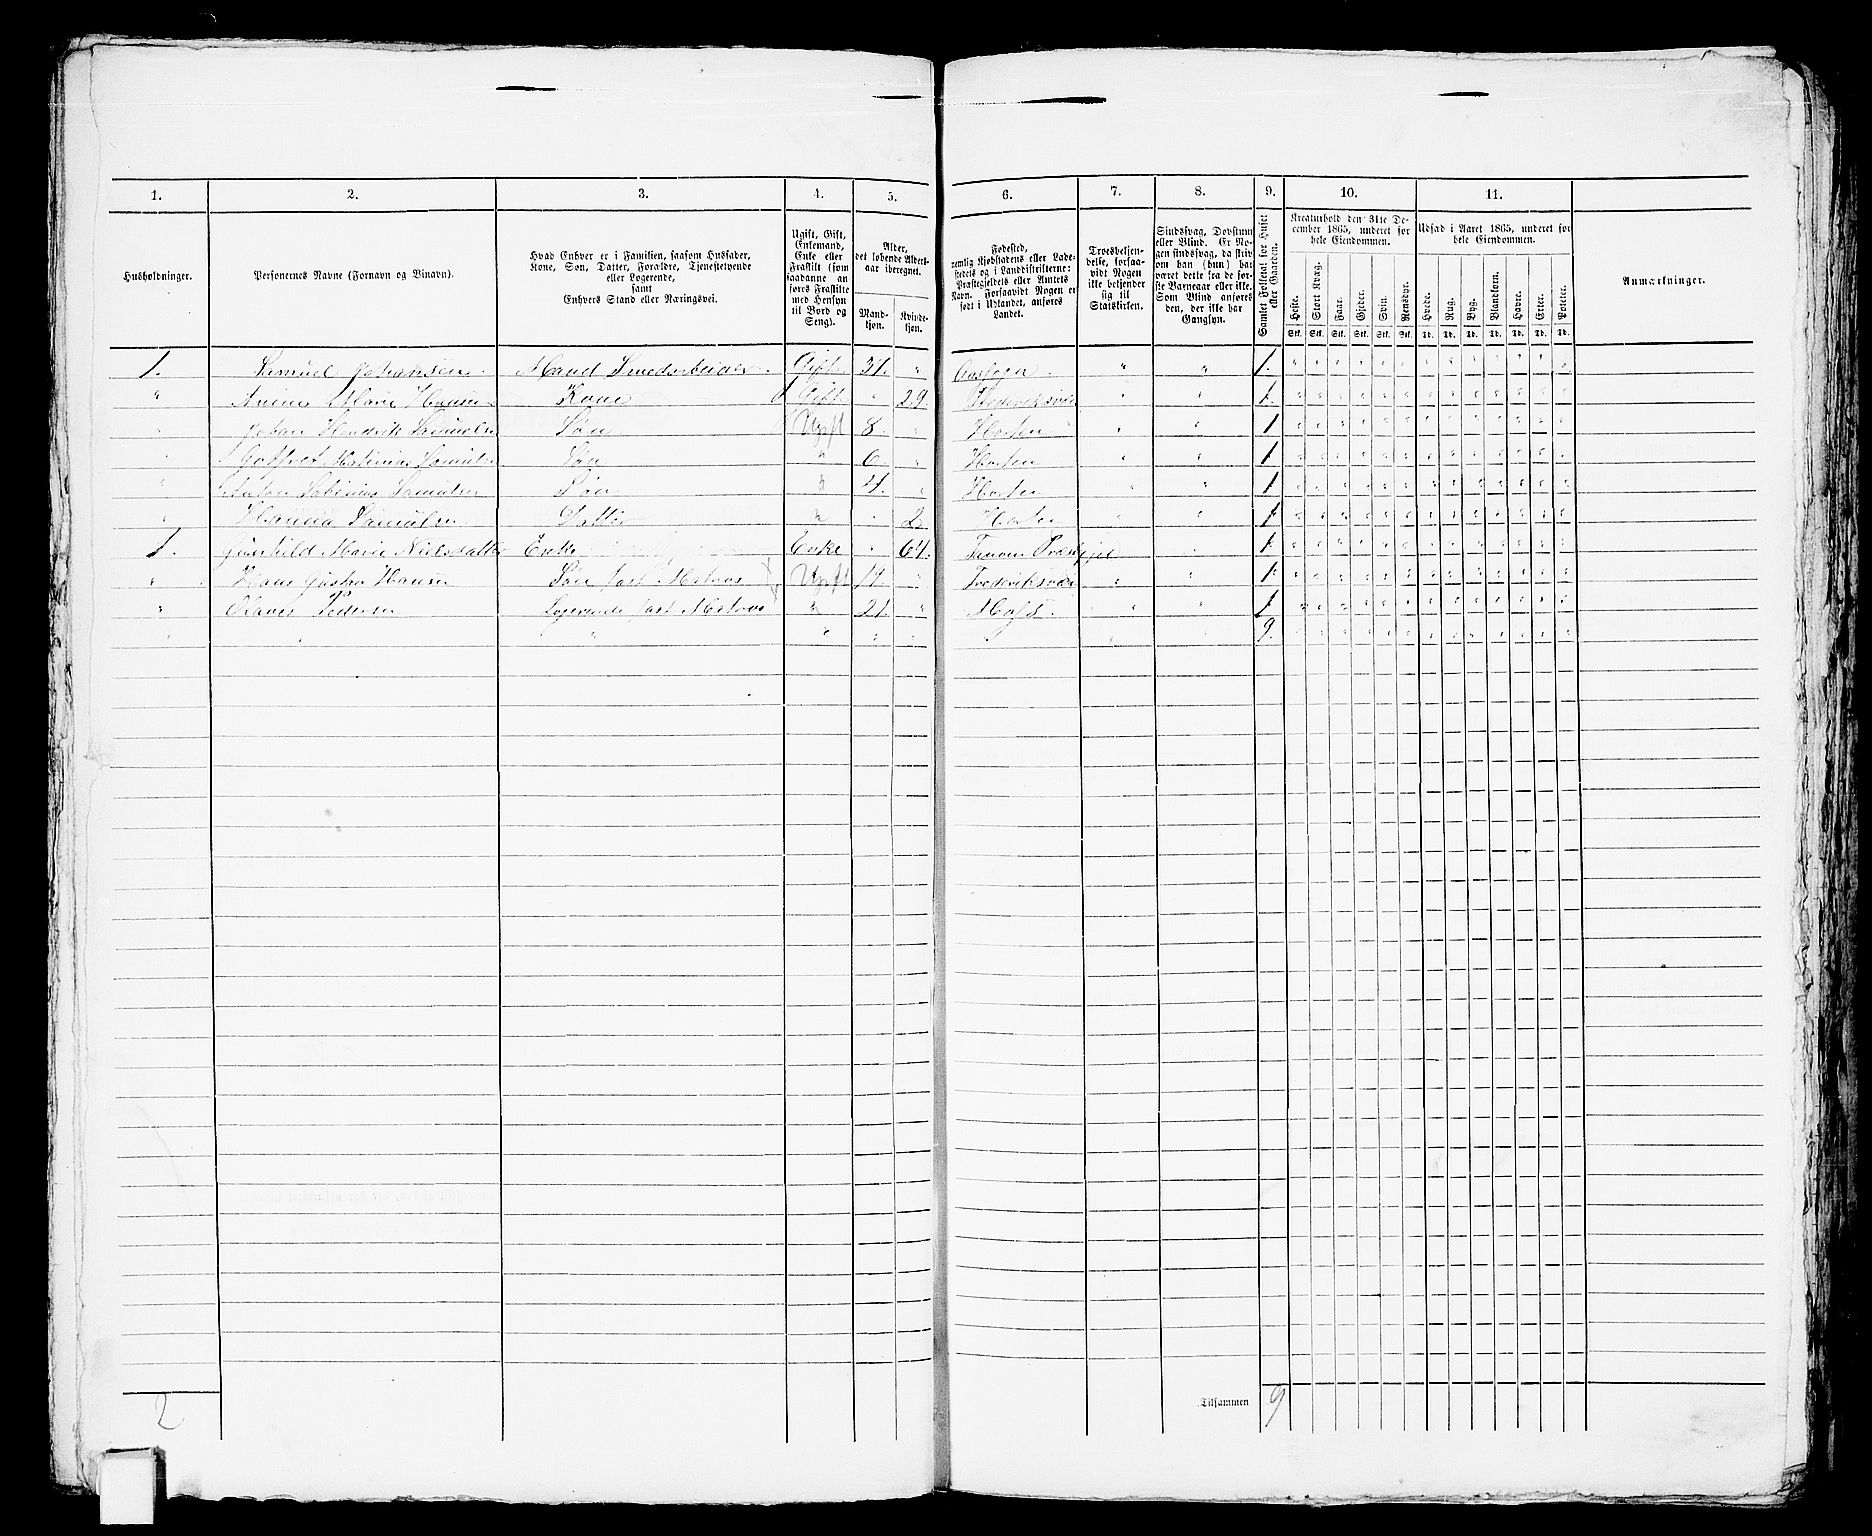 1. 2. 3. 4. 5. 6. 7. 8. 9. 10. 11.
Husholdninger.
Personernes Navne (Fornavn og Tilnavn).
Hvad Enhver er i Familien, saasom Husfader,
Kone, Søn, Datter, Forældre, Tjenestetyende
eller Logerende,
samt
Enhvers Stand eller Næringsvei.
Ugift, Gift,
Enkemand,
Enke eller
Fraskilt (som
saadanne an
føres Fraskilte
med Hensyn
til Bord og
Seng).
Alder,
det løbende Alders-
aar iberegnet.
Mand-
kjøn.
Kvinde-
kjøn.
Fødested,
nemlig Kjøbstadens eller Lade-
stedets og i Landdistrikterne:
Præstegjeldets eller Amtets
Navn. Forsaavidt Nogen er
født i Udlandet, anføres
Landet.
Troesbekjen-
delse, forsaa-
vidt Nogen
ikke bekjender
sig til
Statskirken.
Sindssvag, Døvstum
eller Blind. Er No-
gen sindssvag, da skriv
om han (hun) har
været dette fra de før-
ste Barneaar eller ikke.
Som Blind anføres
den, der ikke har
Gangsyn.
Samlet Folketal for Huset
eller Gaarden.
Kreaturhold den 31te De-
cember 1865, underet for
hele Eiendommen.
Heste. Stort Kvæg. Faar. Gjeder. Svin. Rensdyr.
Stk. Stk. Stk. Stk. Stk. Stk.
Udsæd i Aaret 1865, underet for
hele Eiendommen.
Hvede. Rug. Byg. Blandkorn. Havre. Erter. Poteter.
Td. Td. Td. Td. Td. Td. Td.
Anmærkninger.
1. Samuel Johansen. Mand Smedarbeider. Gift 31. " " " 1.
" Anne Marie Hansen Kone Gift " 29. Frederiksværn " " 1.
" Johan Hendrik Samuelsen Søn Ugift 8. " Horten " " 1
" Søn " 6. " Horten " " 1
" Anton Samuelsen Søn " 4. " Horten " " 1
" Samuelsen Datter " " 2. Horten " " 1
1. Marie Nielsdatter Enke Enke " 64. " " 1.
" Hans Gustav Hansen Søn fast Matros Ugift " Frederiksværn " " 1.
" Pedersen Logerende fast Matros " 21. " " " 1
" " " " " " " 9.
2 Tilsammen 9